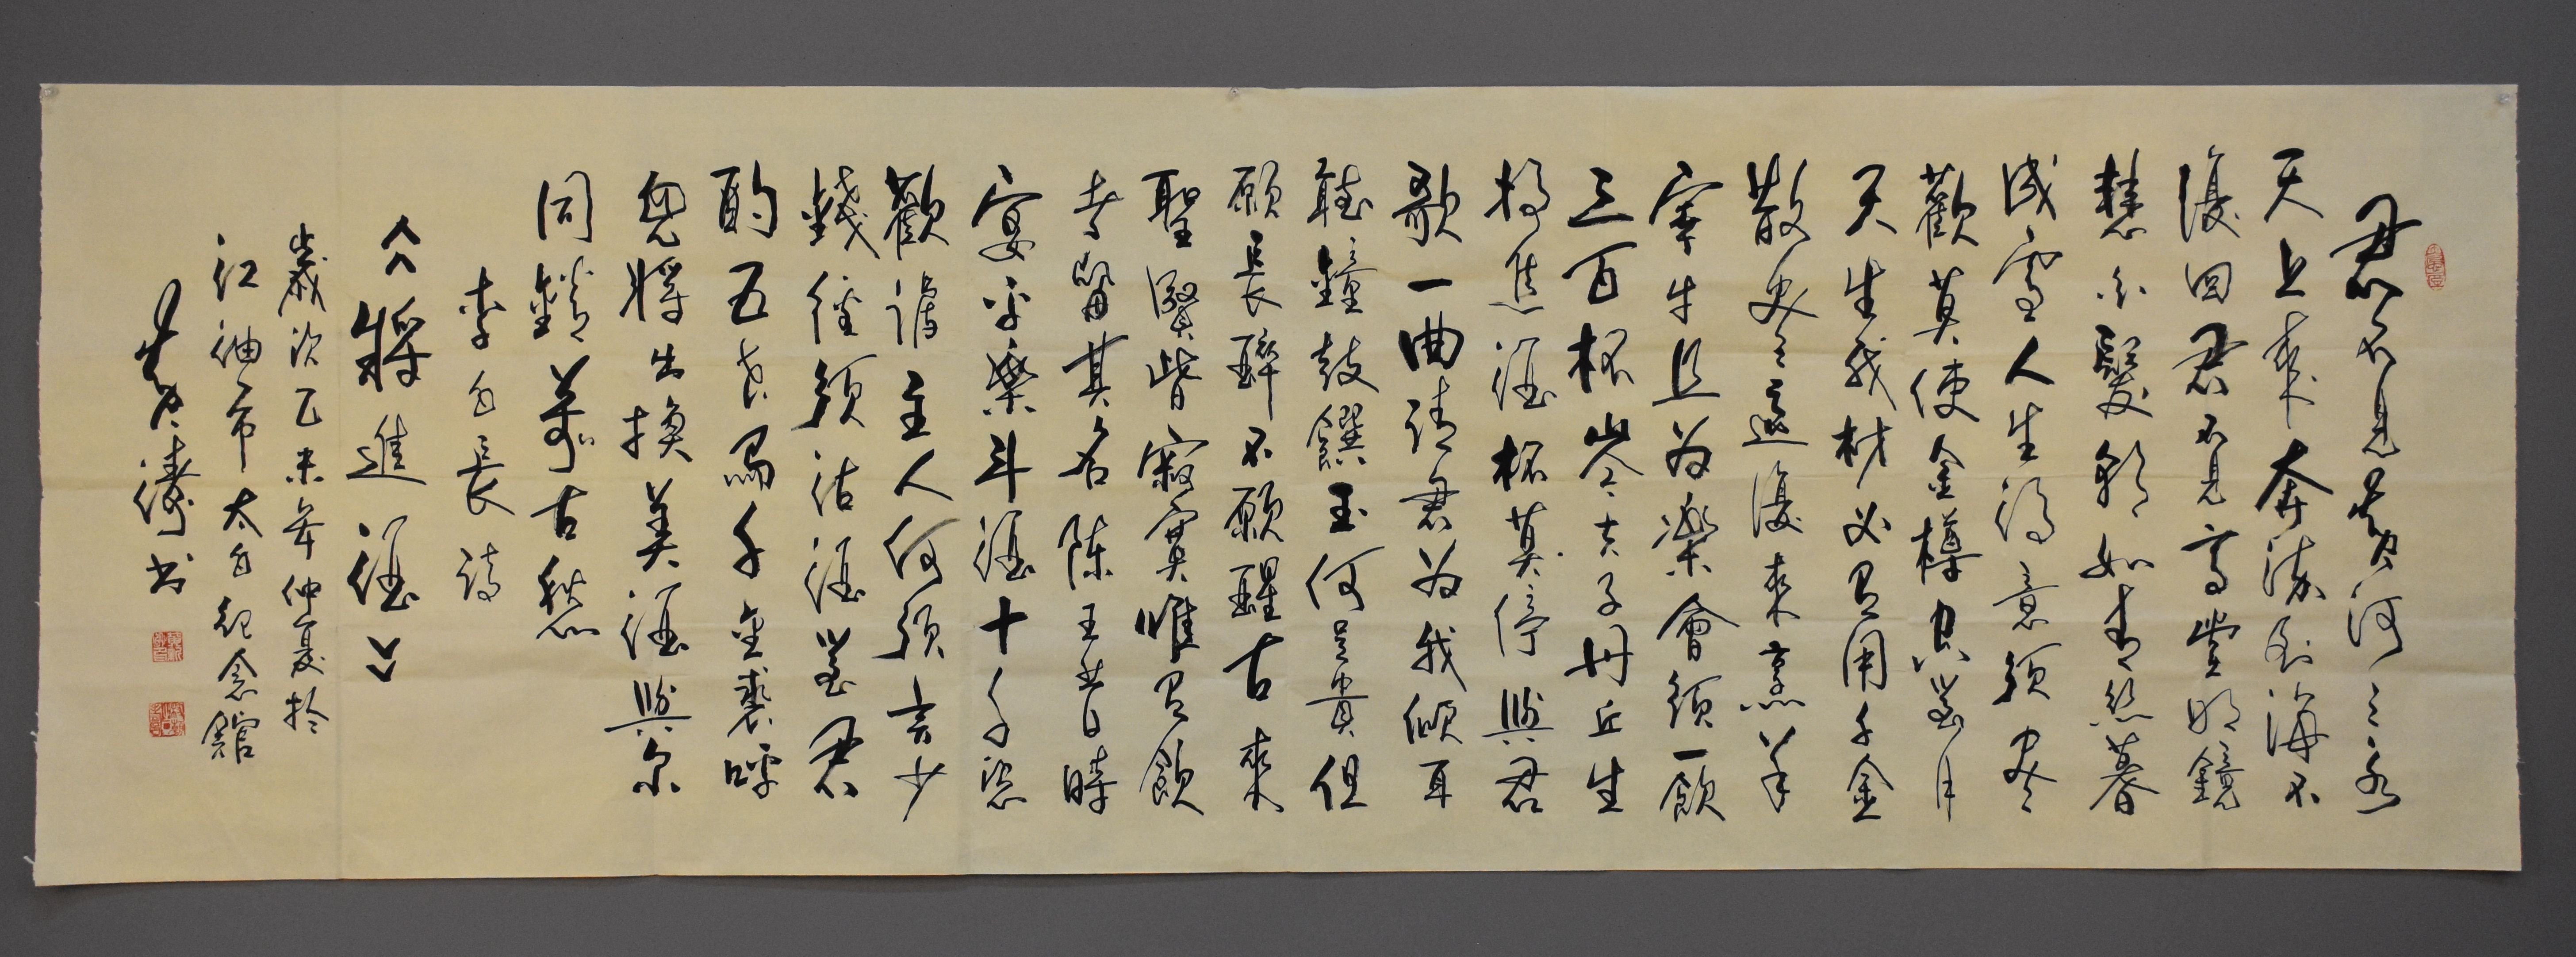 君不見黃河之水
天上來奔流到海不
復回君不見高堂明鏡
悲白髮朝如青絲暮
成雪人生得意須盡
歡莫使金樽空對月
天生我材必有用千金
散盡還復來烹羊
宰牛且為樂會須一飲
三百杯岑夫子丹丘生
將進酒杯莫停與君
歌一曲請君為我傾耳
聽鐘鼓饌玉何足貴但
願長醉不願醒古來
聖賢皆寂寞惟有飲
者留其名陳王昔時
宴平樂斗酒十千恣
歡謔主人何須言少
錢徑須沽酒對君
酌五花馬千金裘呼
兒將出換美酒與爾
同銷萬古愁
李白長詩
《將進酒》
歲次乙未年仲夏於
江油市太白紀念館
黃濤书